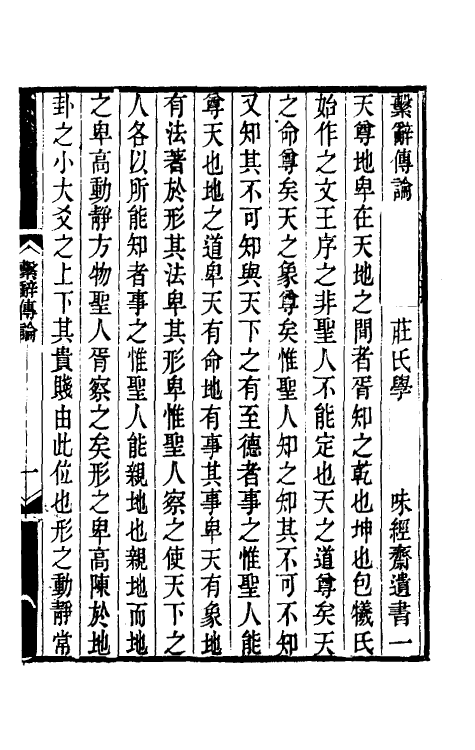 繫辭傳論 莊氏學 味經齋遺書一
天尊地卑在天地之間者胥知之乾也坤也包犧氏
始作之文王序之非聖人不能定也天之道尊矣天
之命尊矣天之象尊矣惟聖人知之知其不可不知
又知其不可知與天下之有至德者事之惟聖人能
尊天也地之道卑天有命地有事其事卑天有象地
有法著於形其法卑其形卑惟聖人察之使天下之
人各以所能知者事之惟聖人能親地也親地而地
之卑高動靜方物聖人胥察之矣形之卑高陳於地
卦之小大爻之上下其貴賤由此位也形之動靜常
繫辭傳論
一